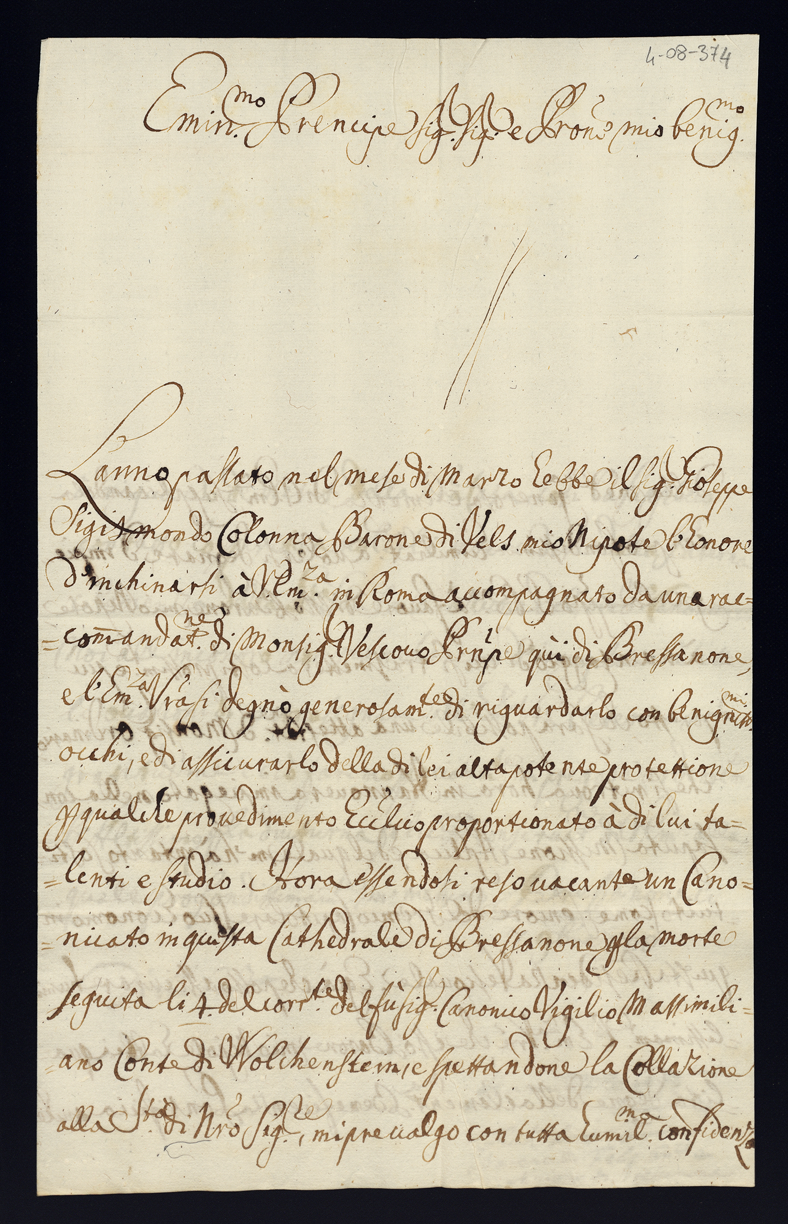 4-08-374
Emin.mo Prencipe Sig.r Sig.r e Prone mio benig.mo
L'anno passato nel mese di Marzo hebbe il Sig.r Gioseppe
Sigismondo Colonna Barone di Vels mio Nipote l'honore
d'inchinarsi à V. Em.za in Roma accompagnato da una rac=
=comandat.ne di Monsig.r Vescovo Prñpe quì di Bressanone,
e l'Em.za Vrã si degnò generosam.te di riguardarlo con benig.mi
occhi, e di assicurarlo della di lei alta potente protettione
p qualche provedimento Ecclico proportionato à di lui ta=
=lenti e studio. Hora essendosi reso vacante un Cano=
=nicato in questa Cathedrale di Bressanone p la morte
seguita li 4 del corr.te del fù Sig.r Canonico Vigilio Massimili=
=ano Conte di Wolchenstein, e spettandone la Collazione
alla S.tà di Nrõ Sig.re, mi prevalgo con tutta humil.ma confidenza